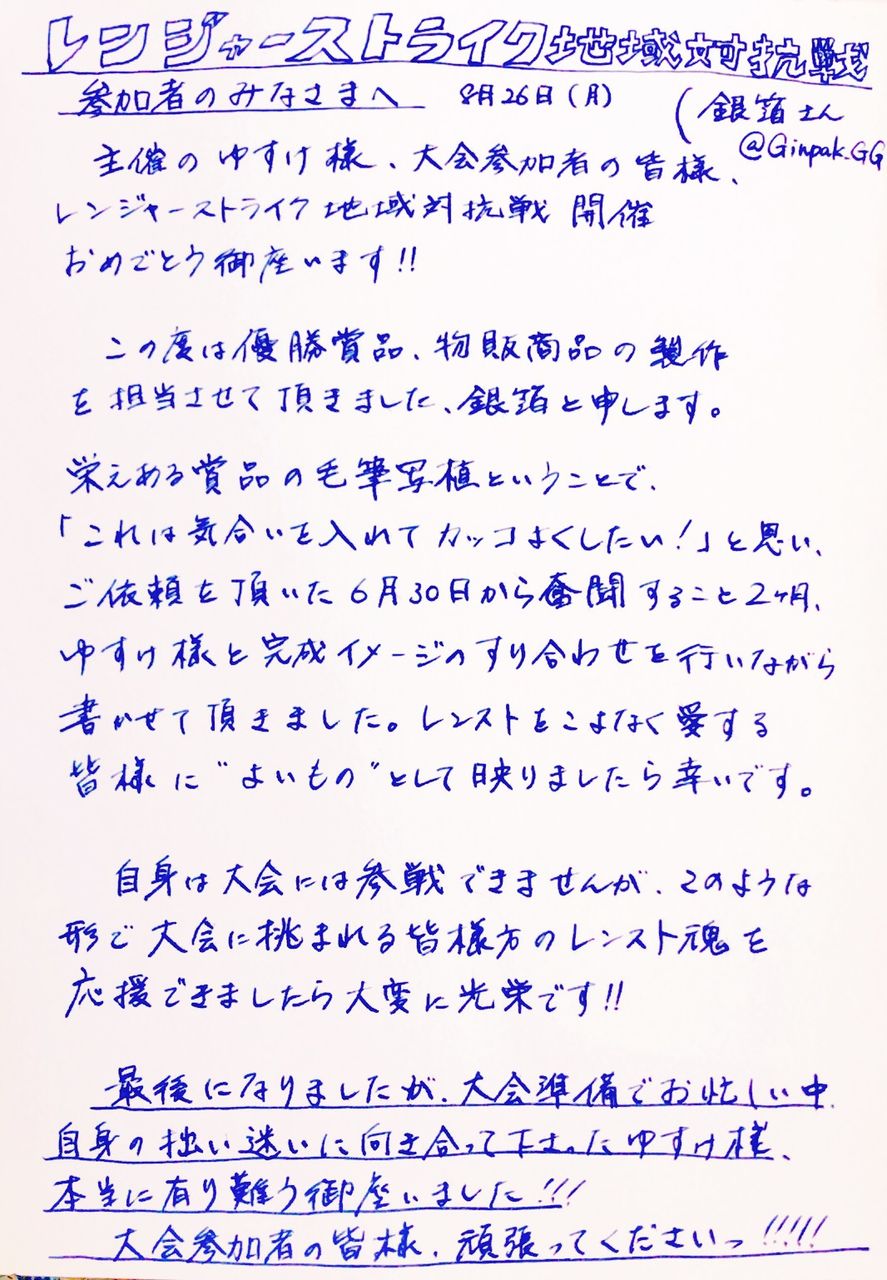 レンジャーストライク地域対抗戦
参加者のみなさまへ 8月26日(月) (銀箔さん
@Ginpak_GG
主催のゆすけ様、大会参加者の皆様、
レンジャーストライク地域対抗戦 開催
おめでとう御座います!!
この度は優勝賞品、物販商品の製作
を担当させて頂きました、銀箔と申します。
栄えある賞品の毛筆写植ということで、
「これは気合いを入れてカッコよくしたい!」と思い、
ご依頼を頂いた6月30日から奮闘すること2ヶ月、
ゆすけ様と完成イメージのすり合わせを行いながら
書かせて頂きました。レンストをこよなく愛する
皆様に"よいもの"として映りましたら幸いです。
自身は大会には参戦できませんが、このような
形で大会に挑まれる皆様方のレンスト魂を
応援できましたら大変に光栄です!!
最後になりましたが、大会準備でお忙しい中
自身の拙い迷いに向き合って下さったゆすけ様、
本当に有り難う御座いました!!!
大会参加者の皆様、頑張ってくださいっ!!!!!